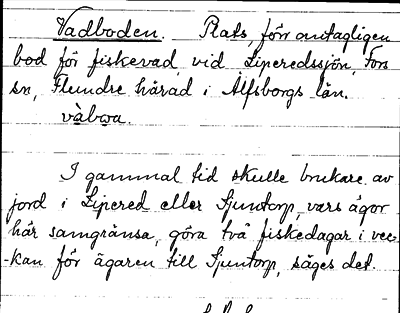 Vadboden. Plats, förr antagligen
bod för fiskevad, vid Liperedssjön, Fors
sn, Flundre härad i Älfsborgs län.
vàbωa.
I gammal tid skulle brukare av
jord i Lipered eller Sjuntorp, vars ägor
här samgränsa, göra två fiskedagar i vec-
-kan för ägaren till Sjuntorp, säges det.